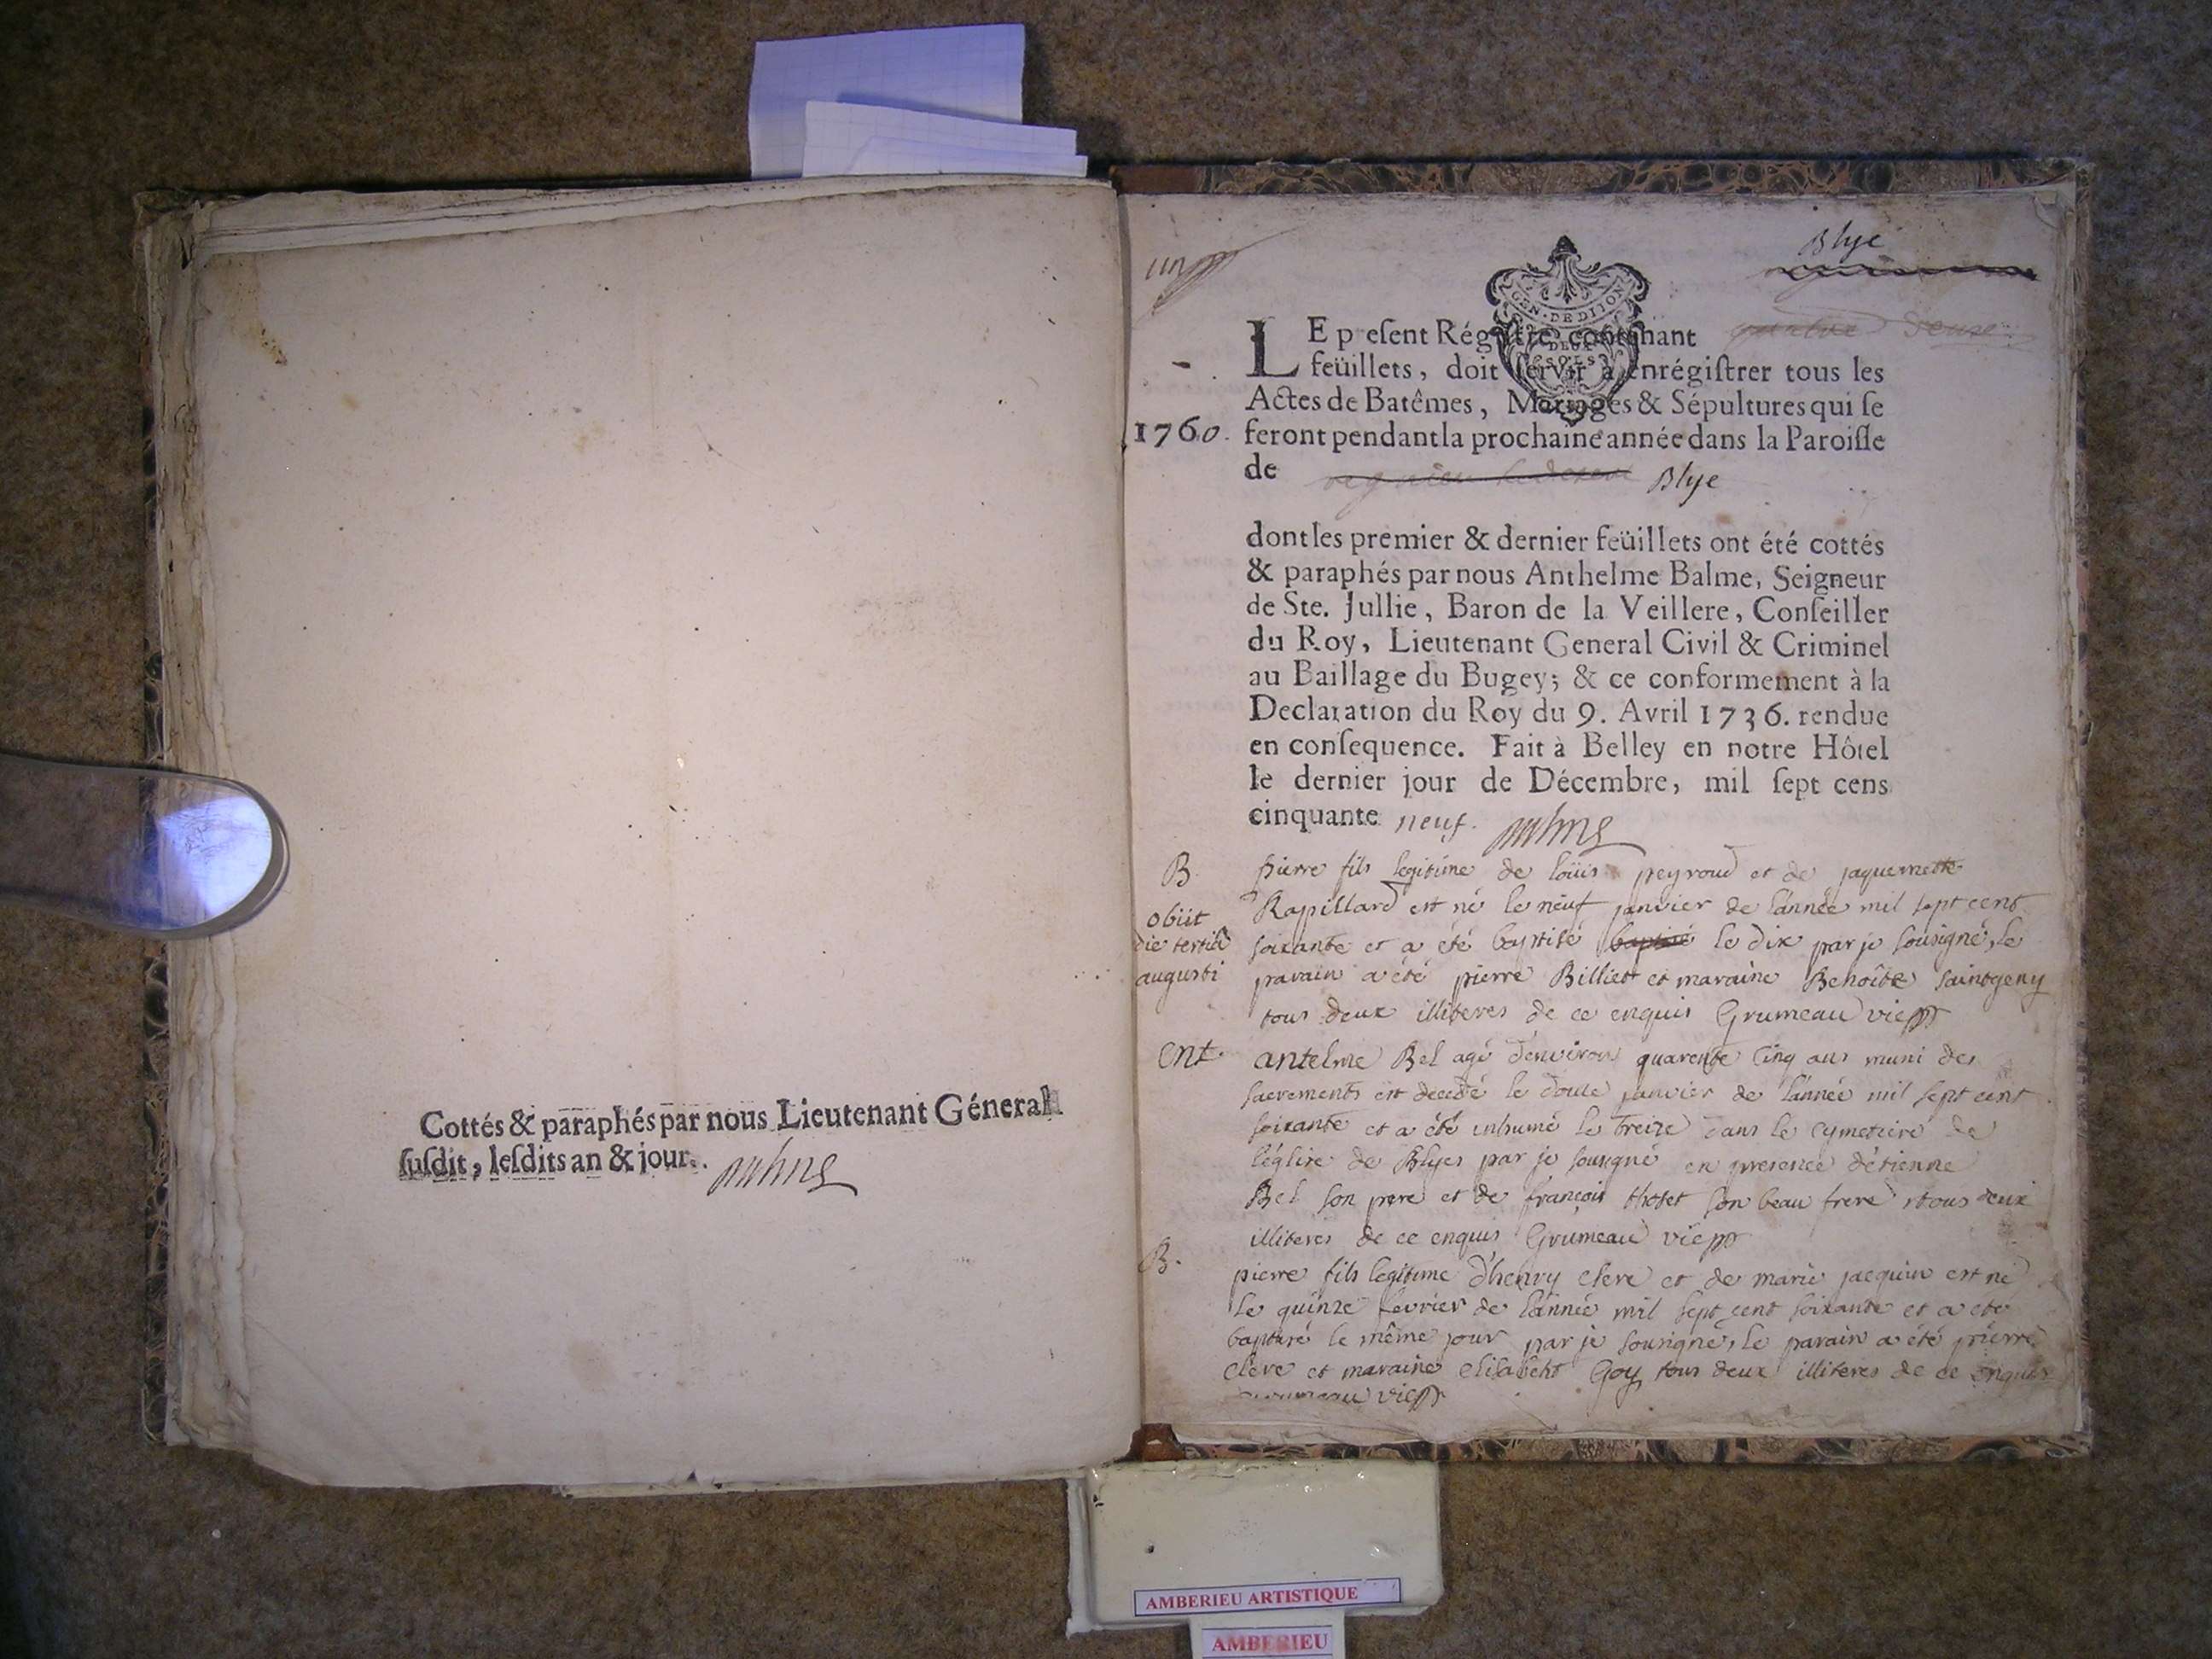 Cottés & paraphés par nous Lieutenant Géneral
ſuſdit, leſdits an & jour.
Blye
GEN. DE DIJON
DEUX
SOLS
LE preſent Régiſtre contenant
feüillets, doit ſervir à enrégiſtrer tous les
Actes de Batêmes, Mariages & Sépultures qui ſe
1760. feront pendant la prochaine année dans la Paroiſſe
de Blye
dont les premier & dernier feüillets ont été cottés
& paraphés par nous Anthelme Balme, Seigneur
de Ste. Jullie, Baron de la Veillere, Conſeiller
du Roy, Lieutenant General Civil & Criminel
au Baillage du Bugey; & ce conformement à la
Declaration du Roy du 9. Avril 1736. rendue
en conſequence. Fait à Belley en notre Hôtel
le dernier jour de Décembre, mil ſept cens
cinquante neuf.
B. pierre fils legitime de loüis peyroud et de jaquemette
obiit Rapillard est né le neuf janvier de l'année mil sept cent
die tertiâ soixante et a été baptisé baptisé le dix par je sousigné, le
augusti parain a été pierre Billiet et maraine Benoîte saintgeny
tous deux illiteres de ce enquis Grumeau vic
ent. antelme Bel agé d'environ quarente cinq ans muni des
sacrements est decedé le douze janvier de l'année mil sept cent
soixante et a été inhumé le treize dans le cymetiere de
l'église de Blyes par je sousigné en presence d'étienne
Bel son pere et de françois thoset son beau frere tous deux
illiteres de ce enquis Grumeau vic
B. pierre fils legitime d'henry clere et de marie jacquin est né
le quinze fevrier de l'année mil sept cent soixante et a été
baptisé le même jour par je sousigné, le parain a été pierre
clere et maraine elisabeht Goy tous deux illiteres de ce enquis
Grumeau vic
AMBERIEU ARTISTIQUE
AMBERIEU